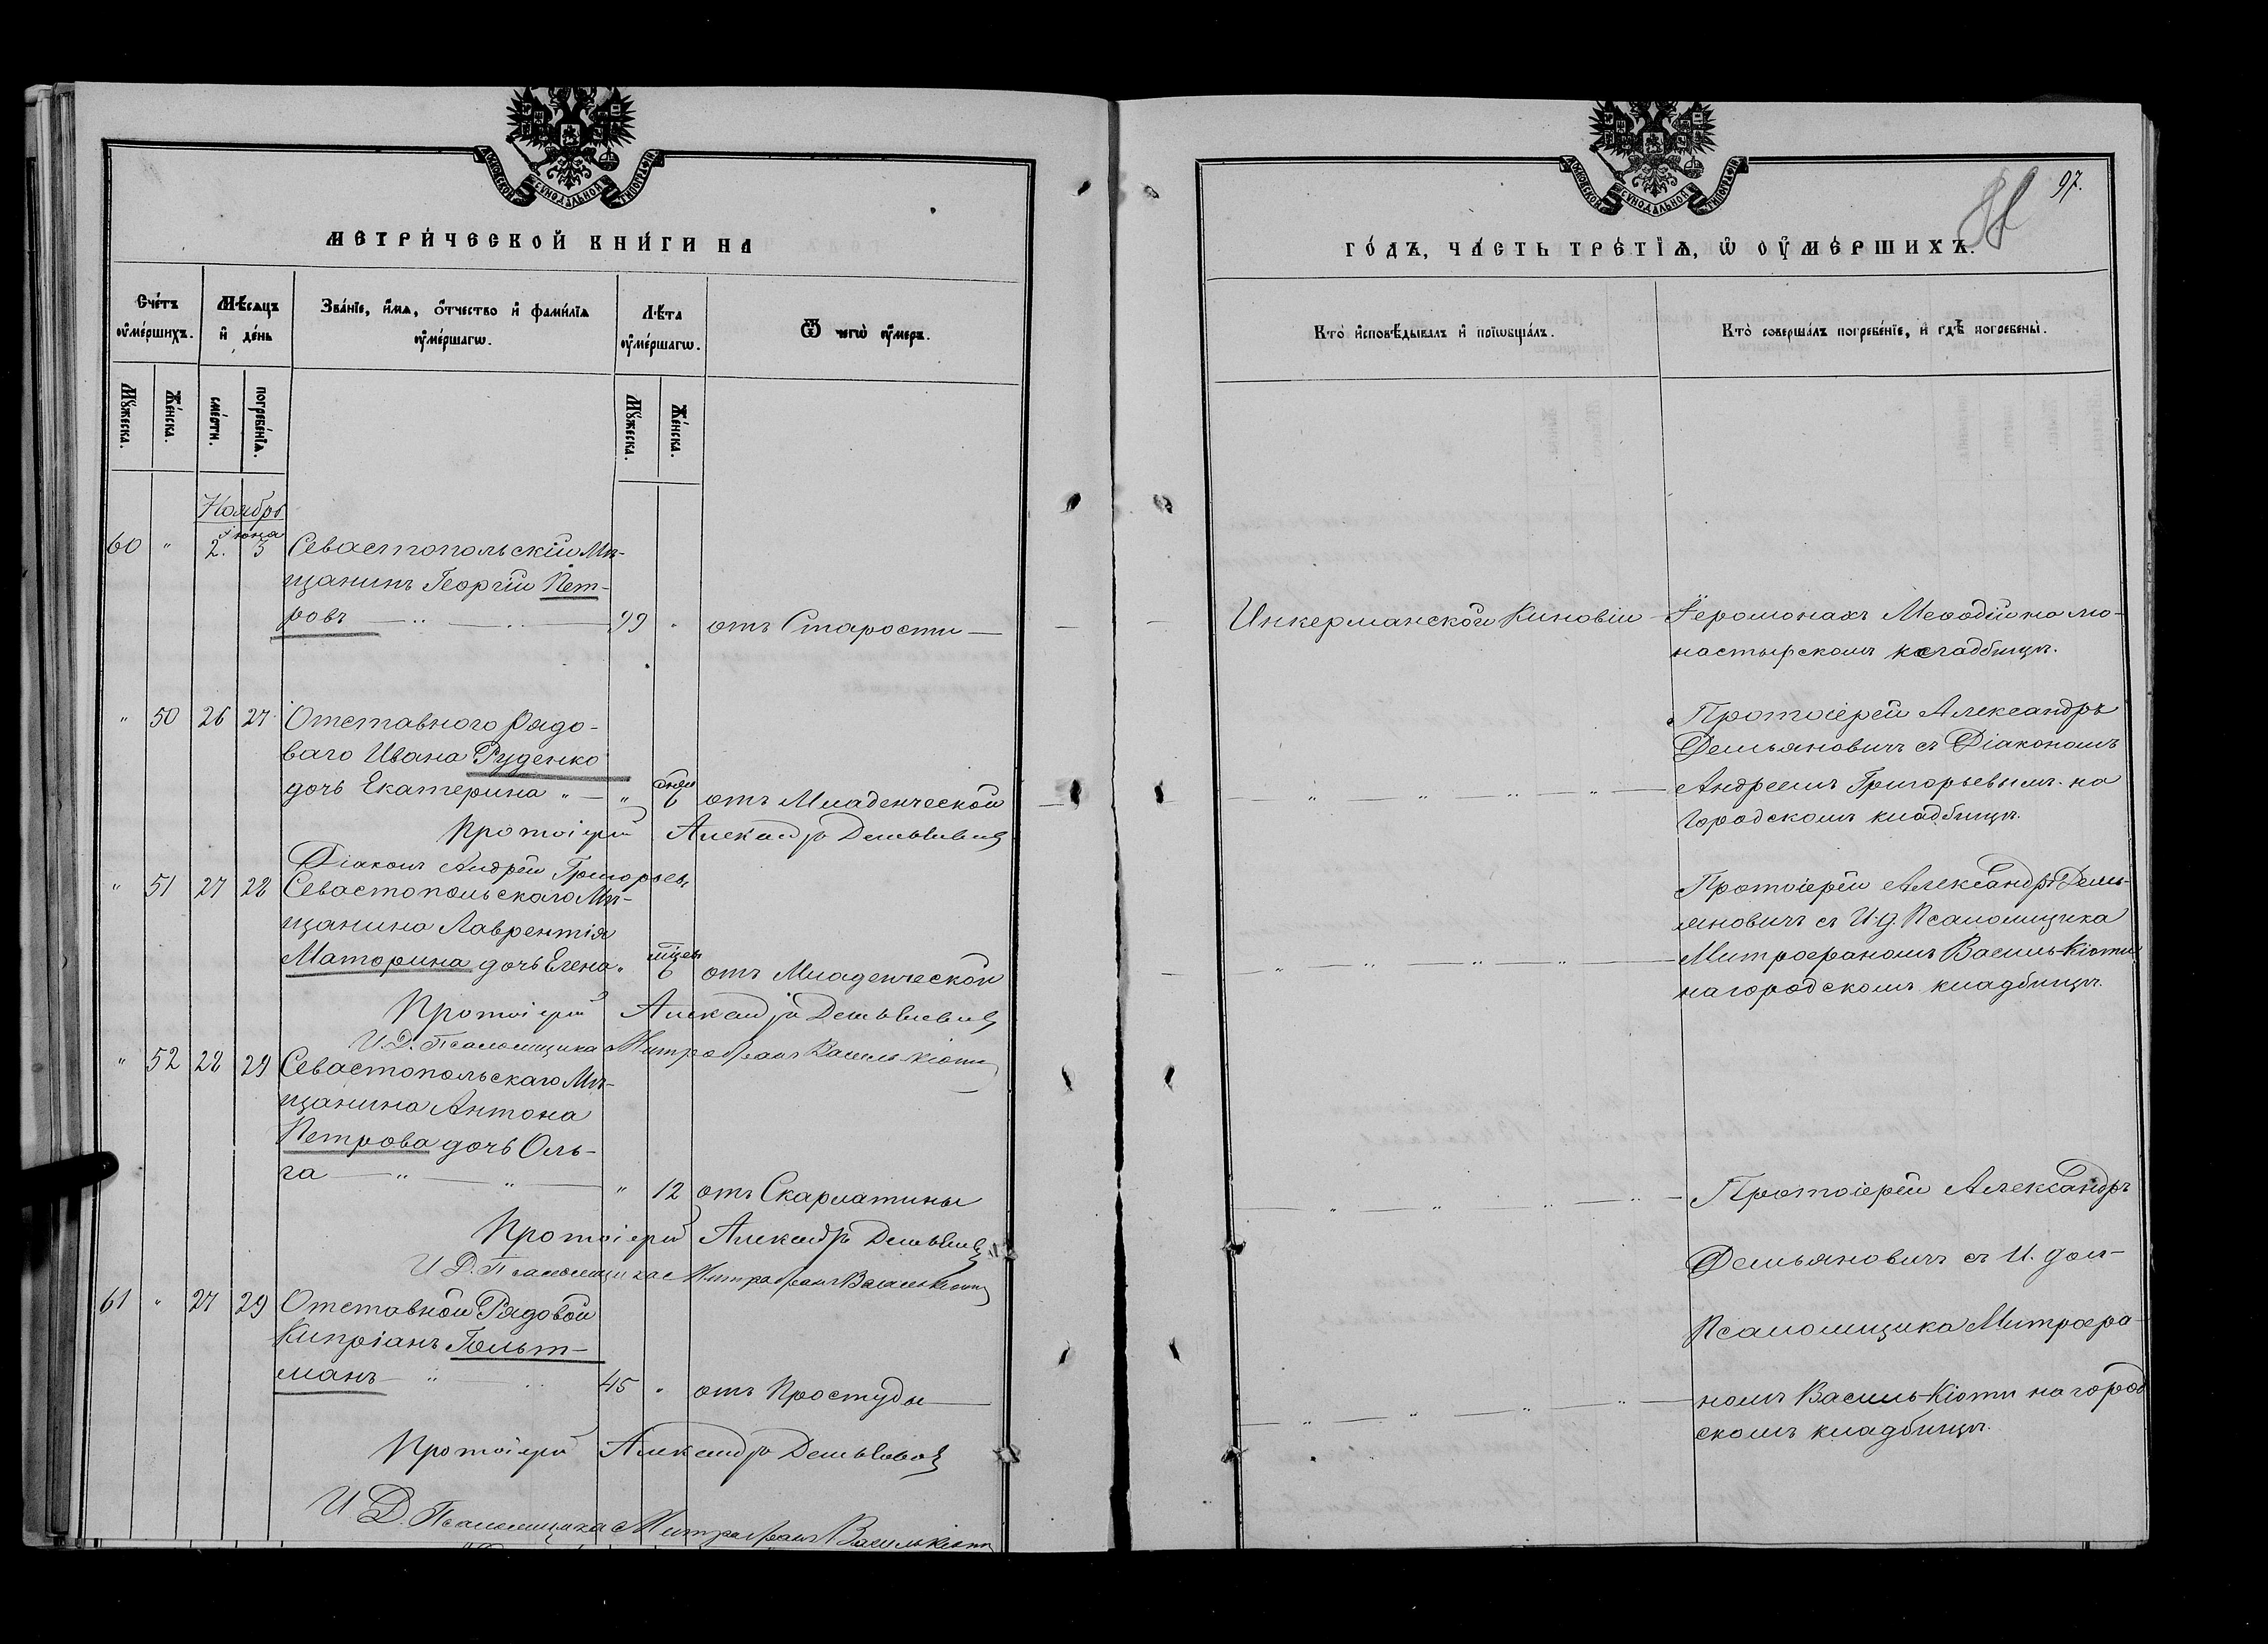 МОСКОВСКОЙ СѴНОДАЛЬНОЙ ТИПОГРАФІИ
МЕТРИ́ЧЕСКОЙ КНИ́ГИ НА
Счéтъ ᲂу҆мéршихъ.
Мѣ́сяцъ и҆ дéнь
Звáнїе, и҆́мѧ, ѻ҆́тчество и҆ фами́лїѧ ᲂу҆мéршагѡ.
Лѣ́та ᲂу҆мéршагѡ.
Ѿ чегѡ̀ ᲂу҆́меръ.
Мꙋ́жеска.
Жéнска.
смéрти.
погребéнїѧ.
Мꙋ́жеска.
Жéнска.
Ноябрь
60 " 2. Іюня 3 Севастопольскій Мѣ-
щанинъ Георгій Пет-
ровъ 99 " отъ Старости
" 50 26 27 Отставного Рядо-
ваго Ивана Руденко
дочь Екатерина " " 6 дней отъ Младенческой
Протоіерей Александръ Демьяновичъ
Діаконъ Андрей Григорьевъ
" 51 27 28 Севастопольскаго Мѣ-
щанина Лаврентія
Маторина дочь Елена " 6 мѣсяц отъ Младенческой
Протоіерей Александръ Демьяновичъ
И.Д. Псаломщика Митрофанъ Василь-Кіоти
" 52 28 29 Севастопольскаго Мѣ-
щанина Антона
Петрова дочь Оль-
га " " " 12 отъ Скарлатины
Протоіерей Александръ Демьяновичъ
И.Д. Псаломщика Митрофанъ Василь-Кіоти
61 " 27 29 Отставной Рядовой
Кипріанъ Гольт-
манъ " 45 " отъ Простуды
Протоіерей Александръ Демьяновичъ
И.Д. Псаломщика Митрофанъ Василь-Кіоти
МОСКОВСКОЙ СѴНОДАЛЬНОЙ ТИПОГРАФІИ
97.
ГÓДЪ, ЧÁСТЬ ТРÉТЇѦ, Ѡ҆ ОУ҆МÉРШИХЪ.
Ктò и҆сповѣ́дывалъ и҆ прїѡбщáлъ.
Ктò совершáлъ погребéнїе, и҆ гдѣ̀ погребены̀.
Инкерманской Киновіи Іеромонахъ Меѳодій на мо-
настырскомъ кладбищѣ.
Протоіерей Александръ
Демьяновичъ съ Діакономъ
Андреемъ Григорьевымъ на
Городскомъ кладбищѣ.
Протоіерей Александръ Демь-
яновичъ съ И.д. Псаломщика
Митрофаномъ Василь-Кіоти
на городскомъ кладбищѣ.
Протоіерей Александръ
Демьяновичъ съ И. дол-
Псаломщика Митрофа-
номъ Василь-Кіоти на город
скомъ кладбищѣ.